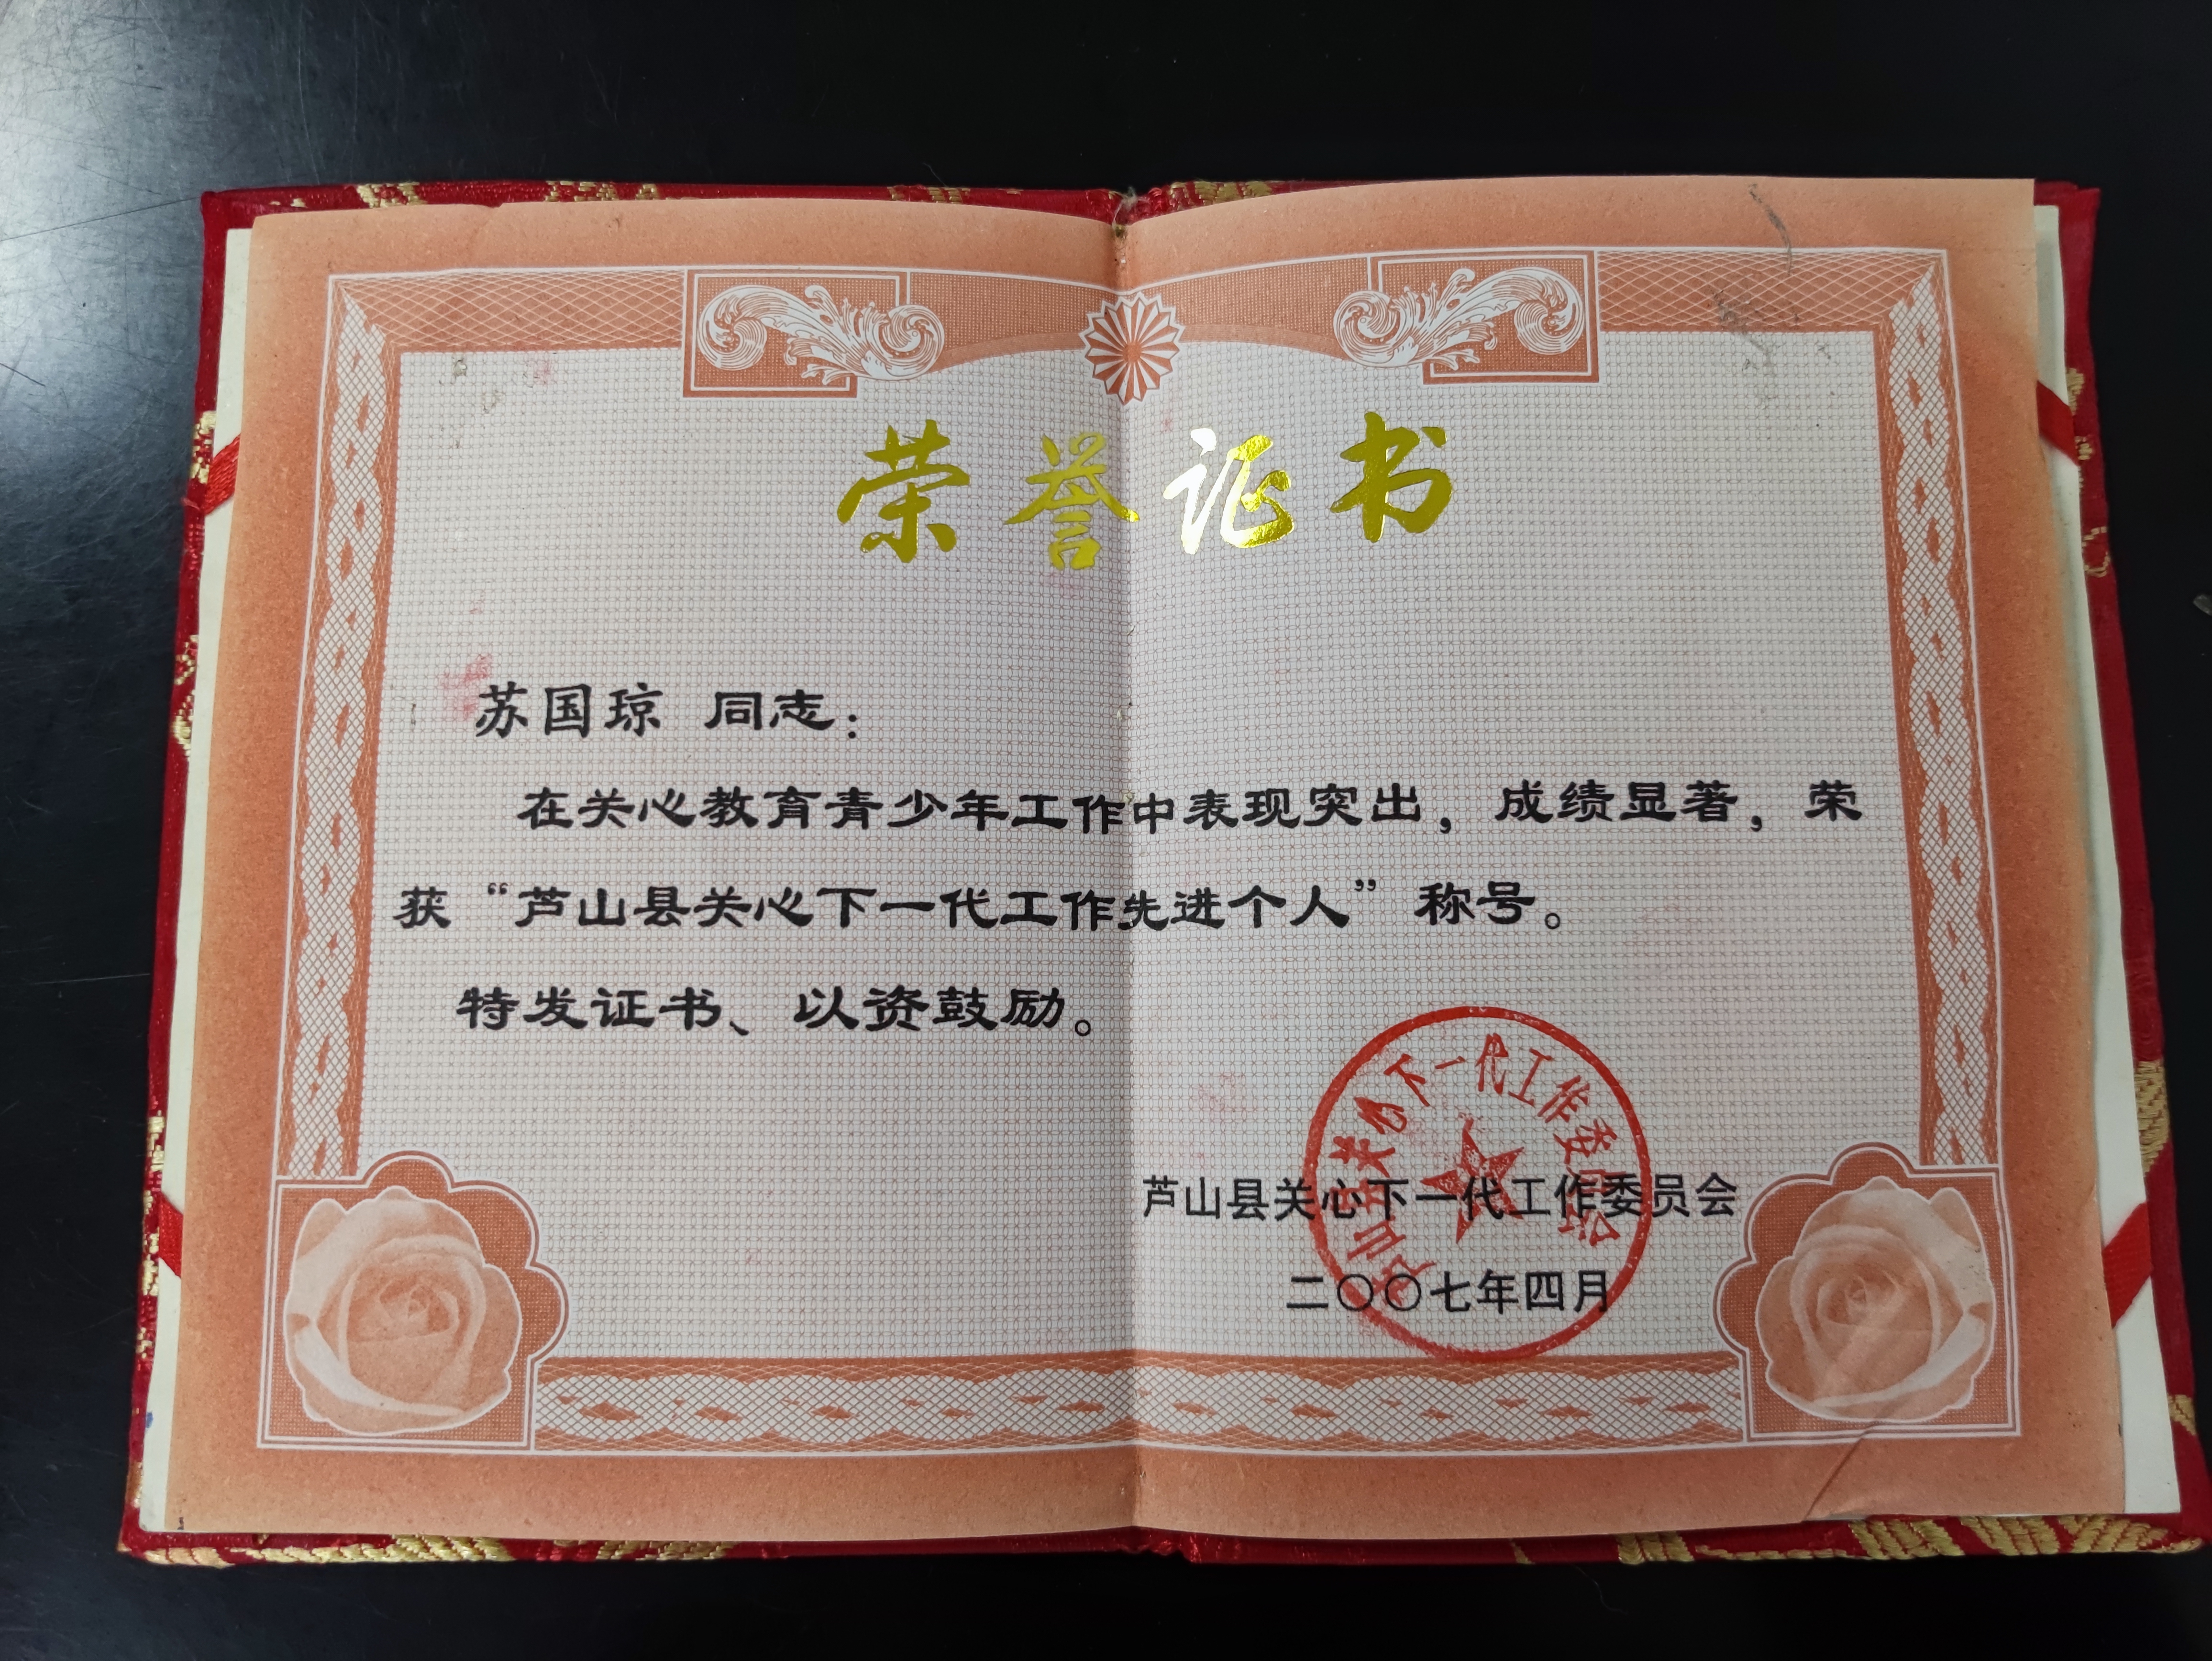 荣誉证书
苏国琼 同志：
在关心教育青少年工作中表现突出，成绩显著，荣
获“芦山县关心下一代工作先进个人”称号。
特发证书、以资鼓励。
芦山县关心下一代工作委员会
二〇〇七年四月
下一代工作委